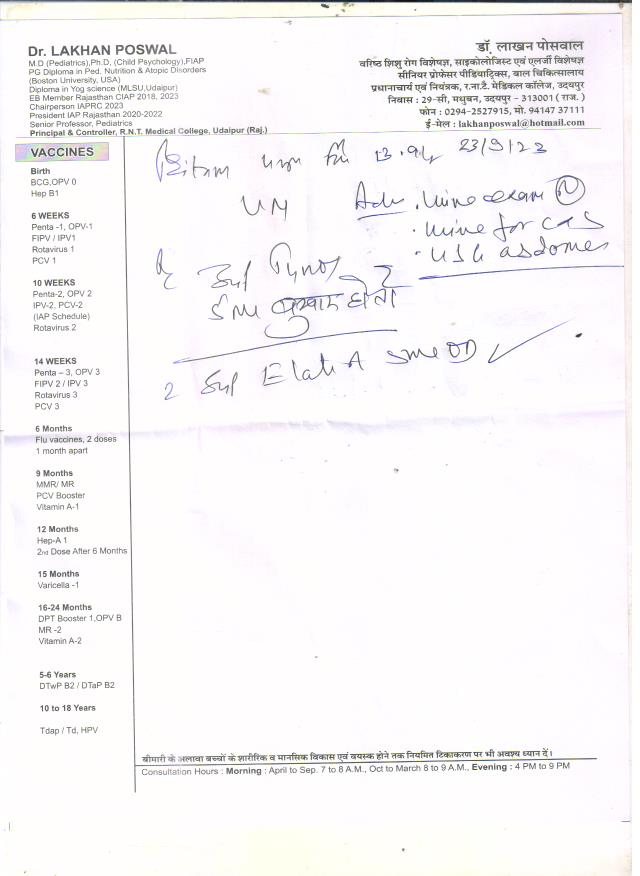 Dr. LAKHAN POSWAL
M.D (Pediatrics),Ph.D, (Child Psychology),FIAP
PG Diploma in Ped. Nutrition & Atopic Disorders
(Boston University, USA)
Diploma in Yog science (MLSU,Udaipur)
EB Member Rajasthan CIAP 2018, 2023
Chairperson IAPRC 2023
President IAP Rajasthan 2020-2022
Senior Professor, Pediatrics
Principal & Controller, R.N.T. Medical College, Udaipur (Raj.)
डॉ. लाखन पोसवाल
वरिष्ठ शिशु रोग विशेषज्ञ, साइकोलोजिस्ट एवं एलर्जी विशेषज्ञ
सीनियर प्रोफेसर पीडियाट्रिक्स, बाल चिकित्सालय
प्रधानाचार्य एवं नियंत्रक, र.ना.टै. मेडिकल कॉलेज, उदयपुर
निवास : 29-सी, मधुबन, उदयपुर – 313001 ( राज. )
फोन : 0294-2527915, मो. 94147 37111
ई-मेल : lakhanposwal@hotmail.com
VACCINES
Birth
BCG,OPV 0
Hep B1
6 WEEKS
Penta -1, OPV-1
FIPV / IPV1
Rotavirus 1
PCV 1
10 WEEKS
Penta-2, OPV 2
IPV-2, PCV-2
(IAP Schedule)
Rotavirus 2
14 WEEKS
Penta – 3, OPV 3
FIPV 2 / IPV 3
Rotavirus 3
PCV 3
6 Months
Flu vaccines, 2 doses
1 month apart
9 Months
MMR/ MR
PCV Booster
Vitamin A-1
12 Months
Hep-A 1
2nd Dose After 6 Months
15 Months
Varicella -1
16-24 Months
DPT Booster 1,OPV B
MR -2
Vitamin A-2
5-6 Years
DTwP B2 / DTaP B2
10 to 18 Years
Tdap / Td, HPV
23/9/23
Adv . Urine exam
. Urine for C&S
. USG abdomen
5ml
2 Syp 5ml OD
बीमारी के अलावा बच्चों के शारीरिक व मानसिक विकास एवं वयस्क होने तक नियमित टिकाकरण पर भी अवश्य ध्यान दें।
Consultation Hours : Morning : April to Sep. 7 to 8 A.M., Oct to March 8 to 9 A.M., Evening : 4 PM to 9 PM